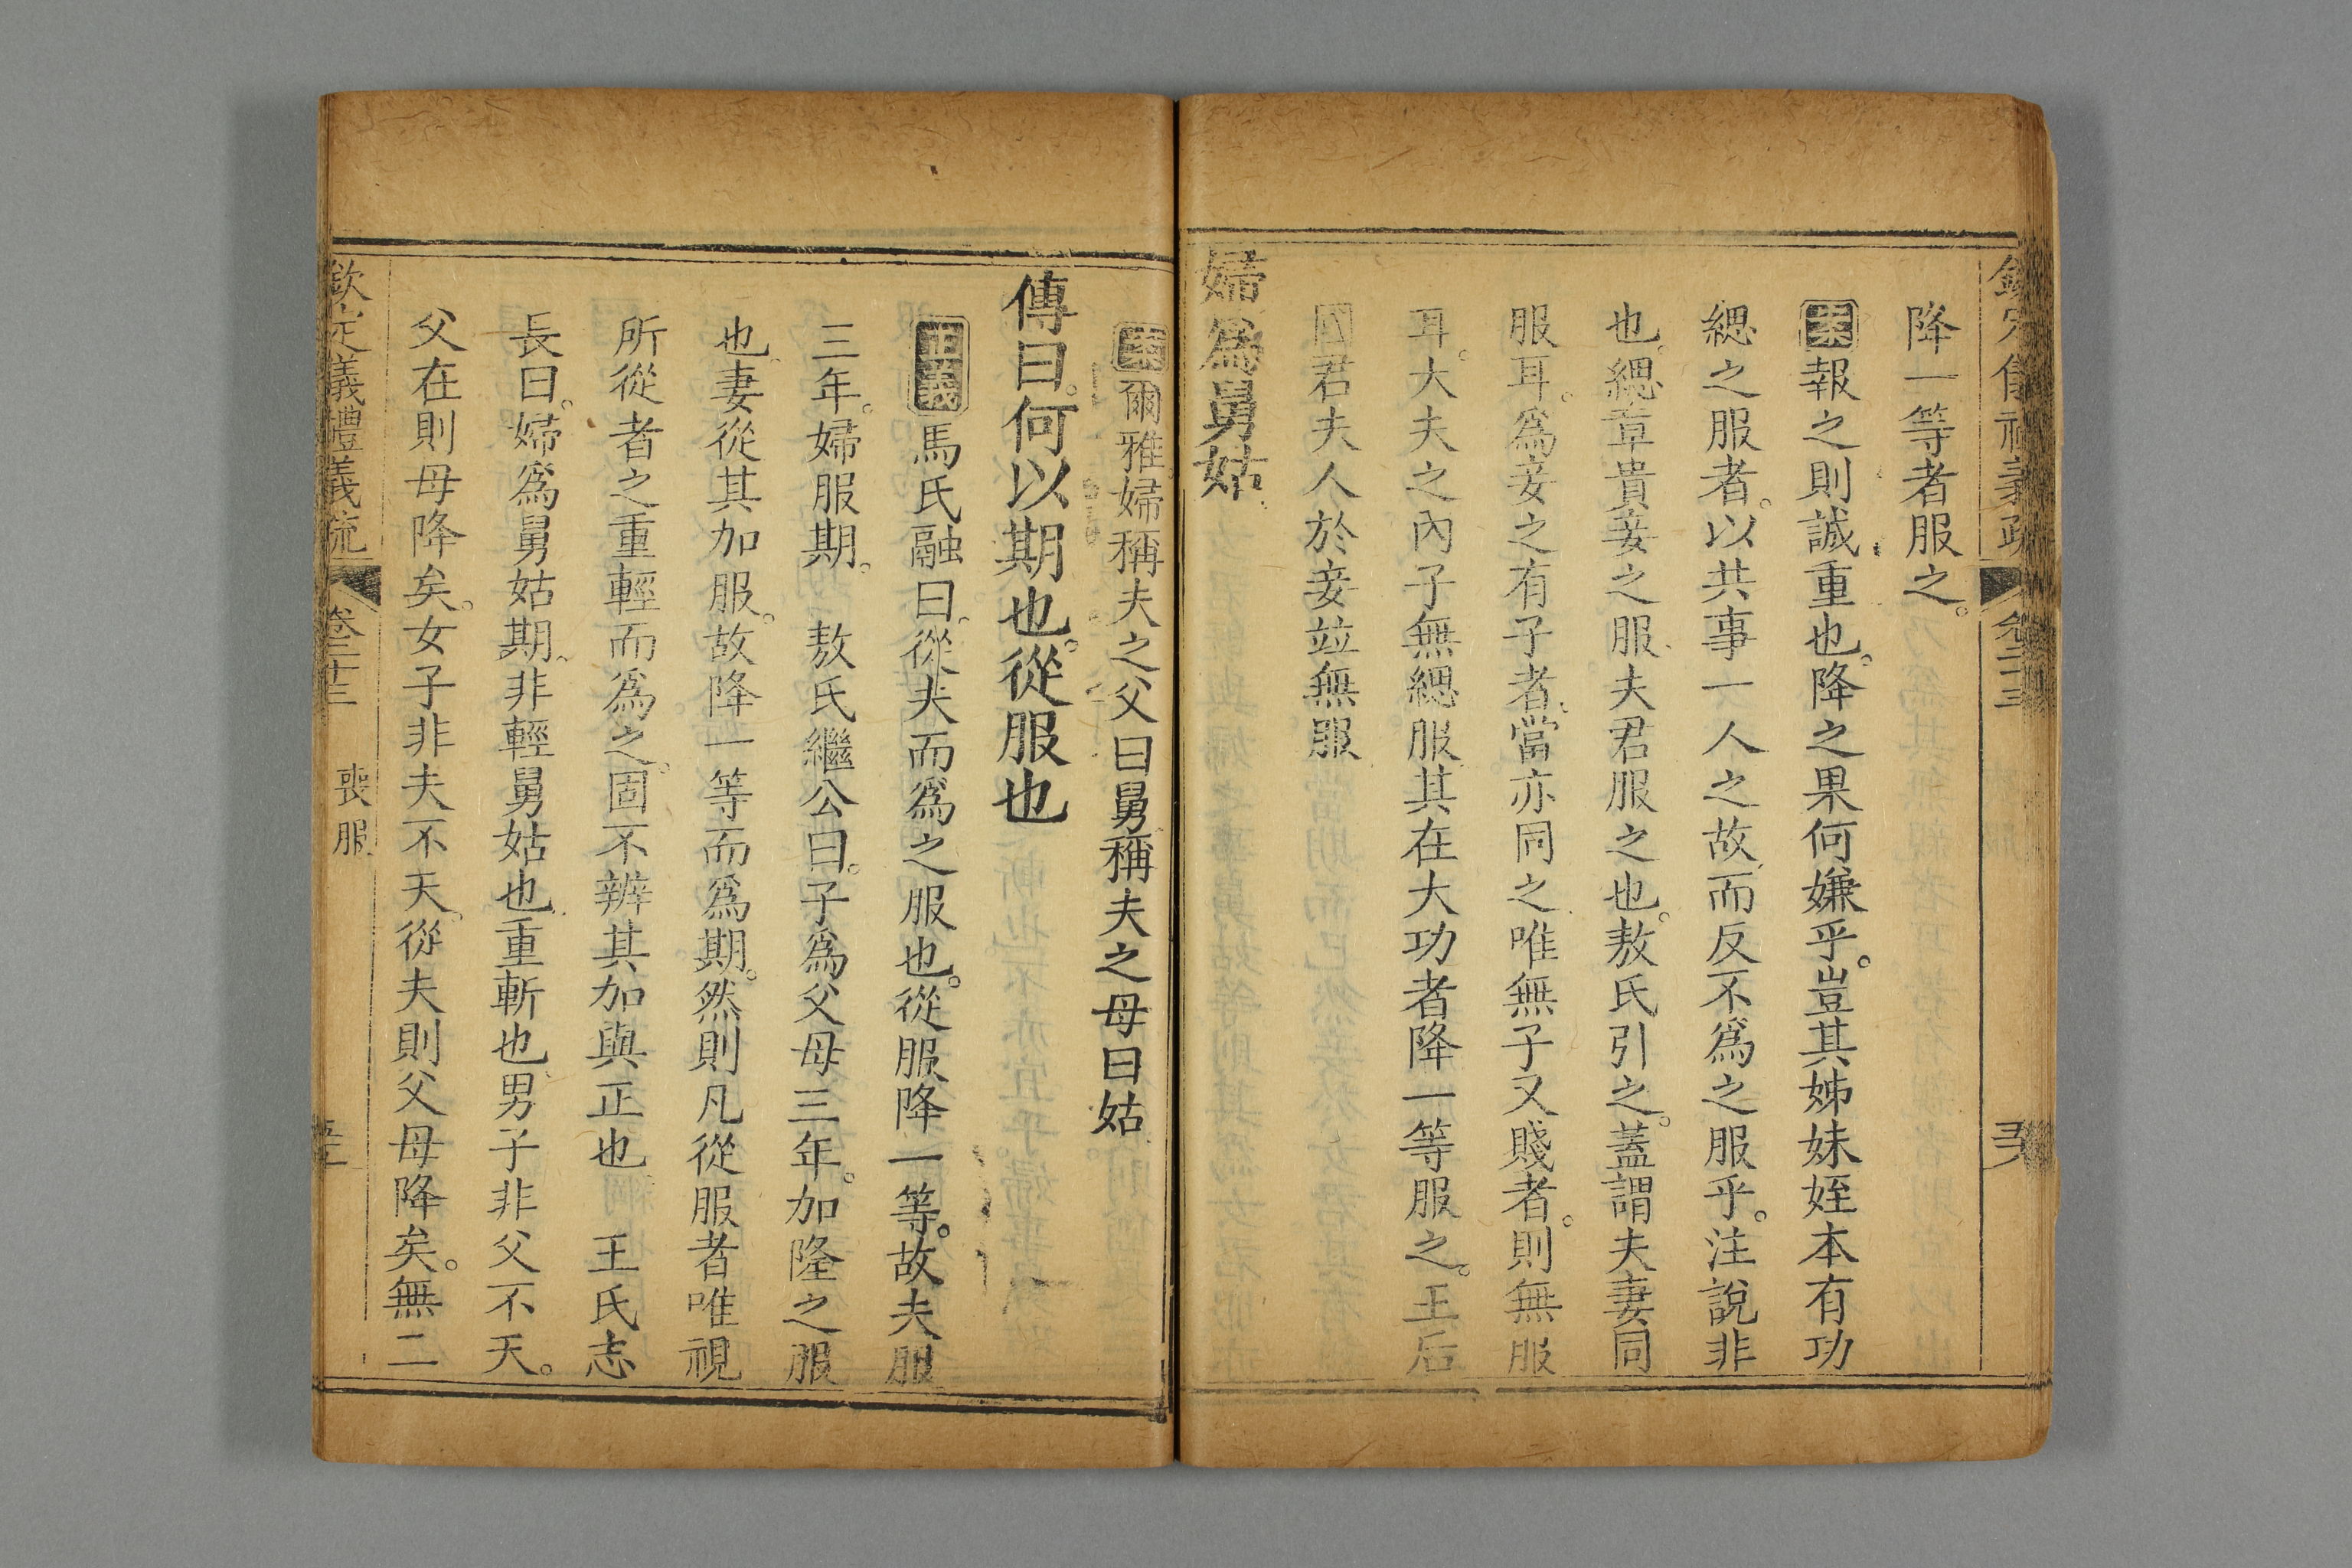 欽定儀禮義疏 卷二十三
降一等者服之。
案報之則誠重也。降之果何嫌乎。豈其姊妹姪本有功
緦之服者。以共事一人之故而反不爲之服乎。注說非
也。緦章貴妾之服夫君服之也。敖氏引之。蓋謂夫妻同
服耳。爲妾之有子者當亦同之唯無子又賤者。則無服
耳。大夫之內子無緦服其在大功者降一等服之。王后
國君夫人於妾竝無服
婦爲舅姑
案爾雅婦稱夫之父曰舅稱夫之母曰姑
傳曰。何以期也。從服也
正義馬氏融曰。從夫而爲之服也。從服降一等。故夫服
三年。婦服期。 敖氏繼公曰。子爲父母三年。加隆之服
也妻從其加服。故降一等而爲期。然則凡從服者唯視
所從者之重輕而爲之。固不辨其加與正也 王氏志
長曰。婦爲舅姑期。非輕舅姑也重斬也男子非父不天。
父在則母降矣。女子非夫不天。從夫則父母降矣。無二
欽定儀禮義疏 卷二十三 喪服